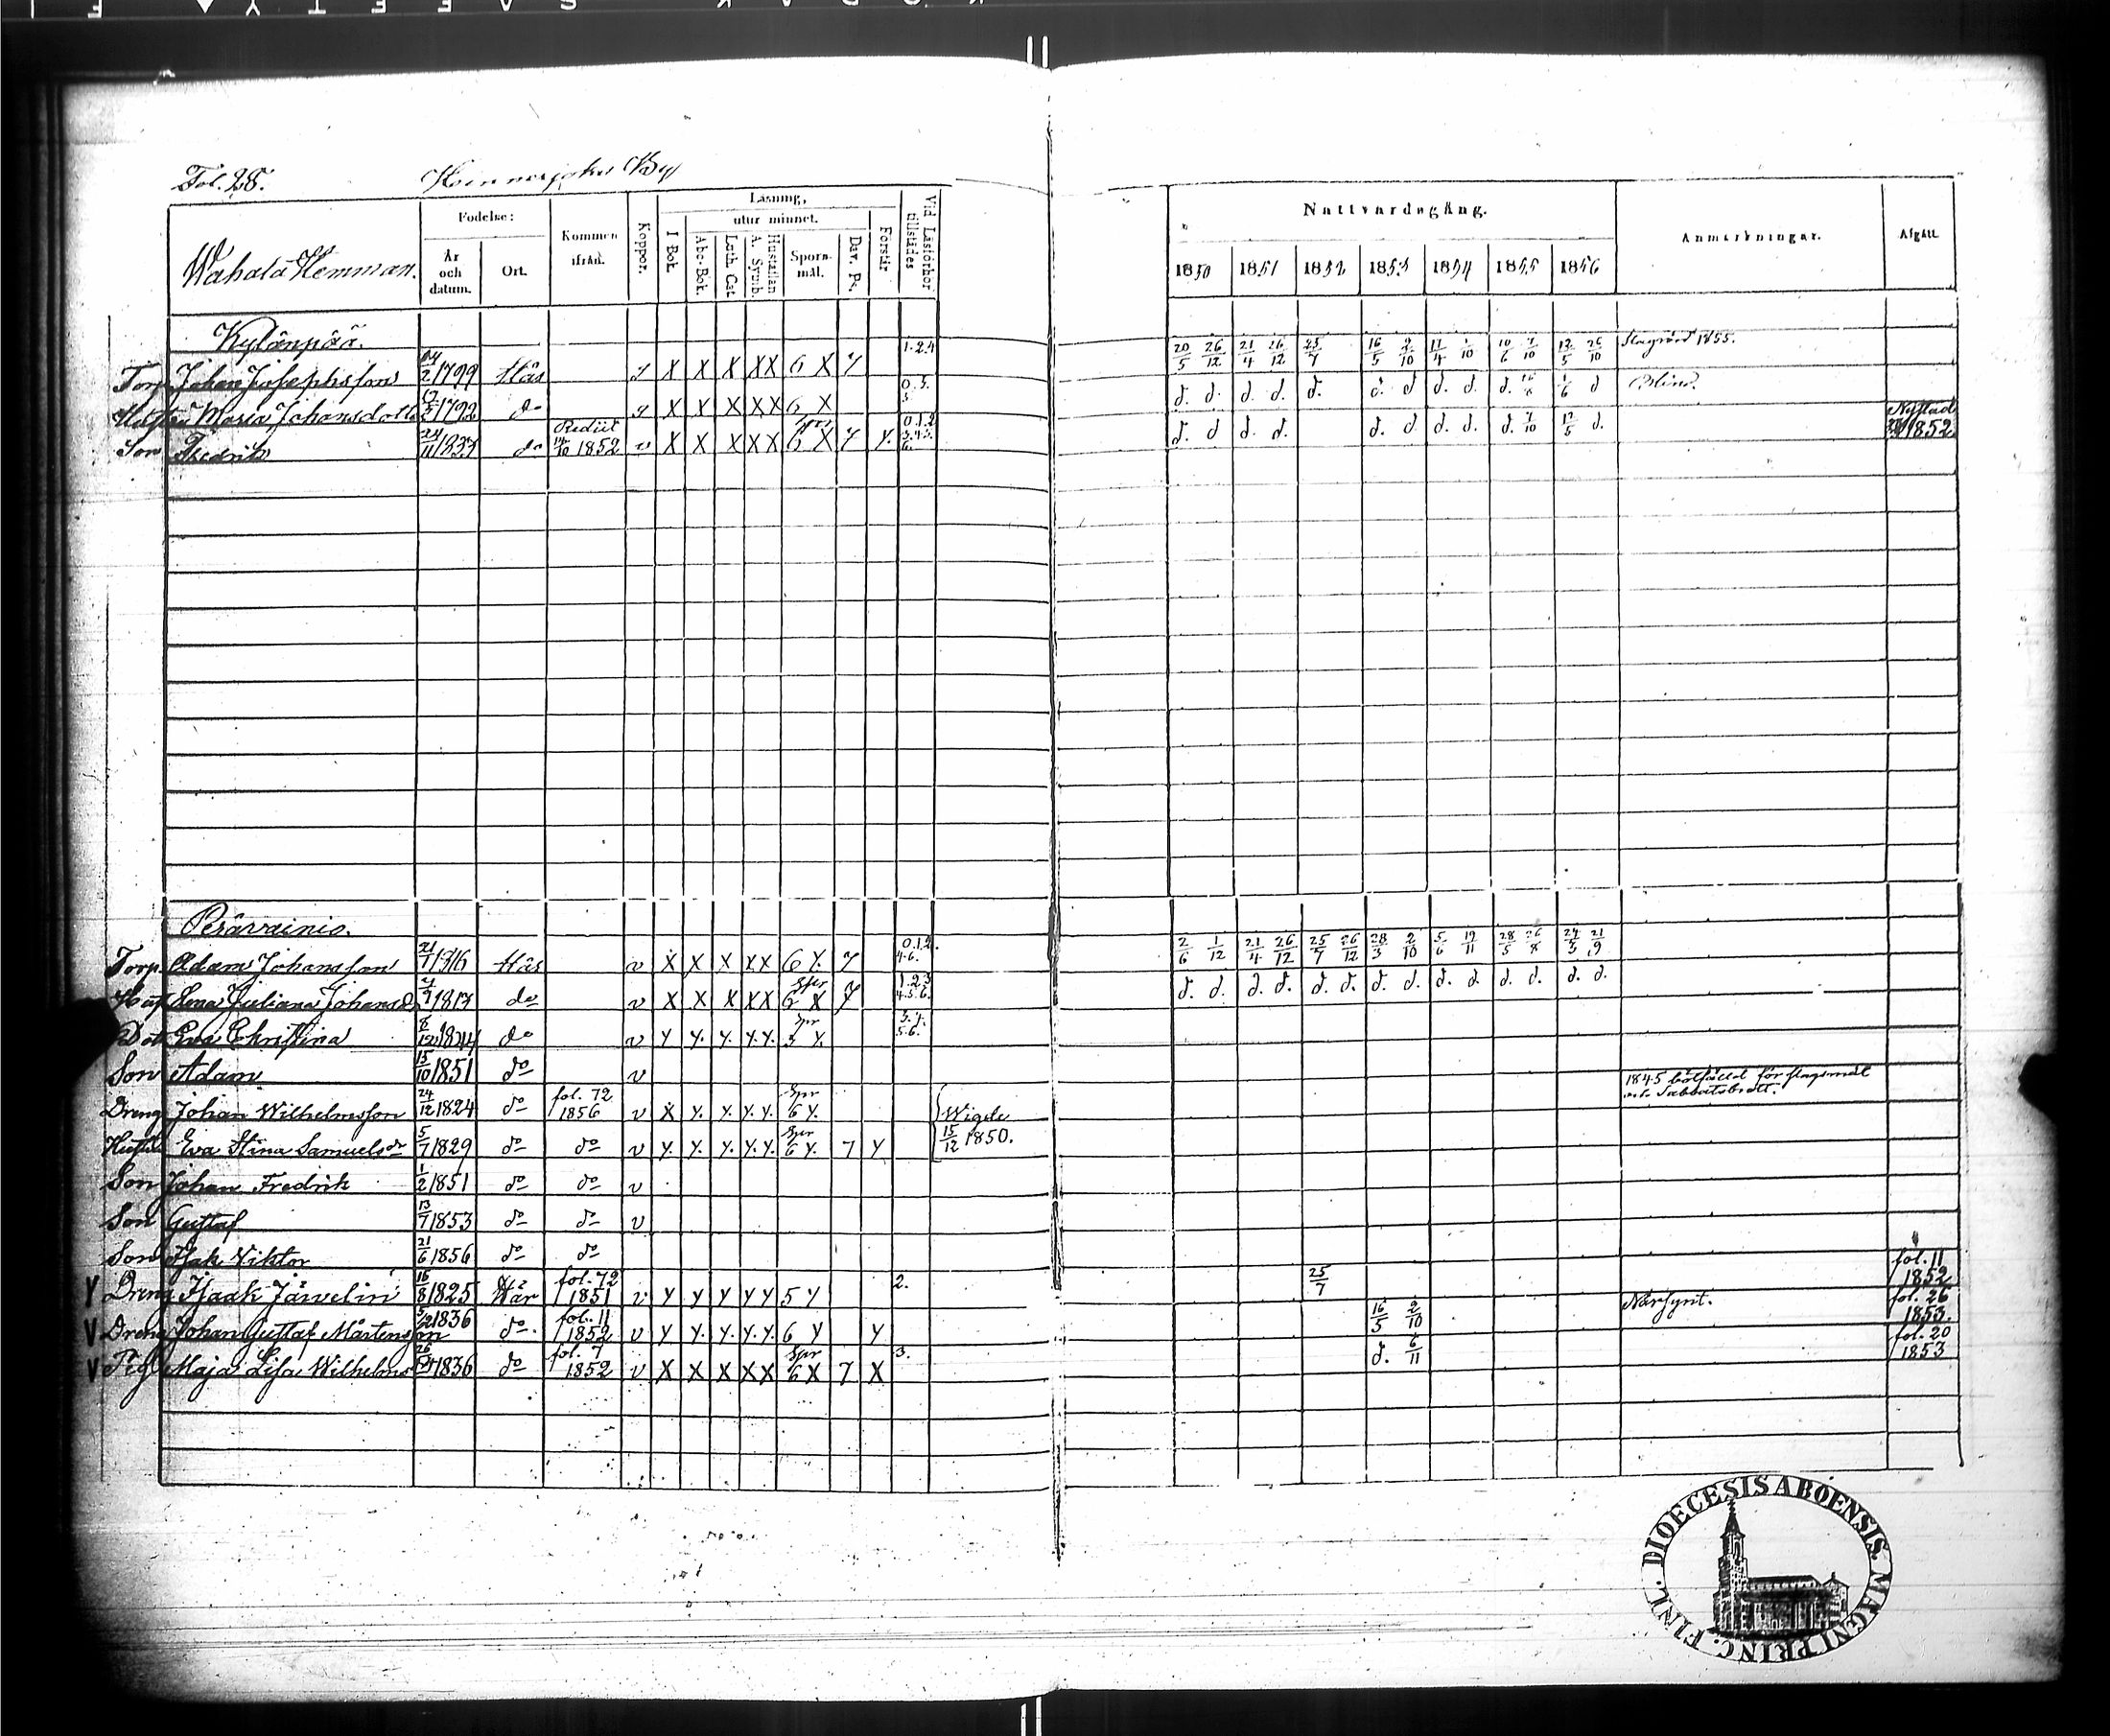 Fol. 28. Hinnerjoki By
Wahala Hemman.
Födelse:
År och datum.
Ort.
Kommen ifrån.
Koppor.
Läsning,
utur minnet.
I Bok.
Abc-Bok.
Luth. Cat.
Hustaflan A. Symb.
Spörsmål.
Dav. Ps.
Förstår
Vid Läsförhör tillstädes
Nattvardsgång.
1850 1851 1852 1853 1854 1855 1856
Anmärkningar.
Afgått.
Kylänpää.
Torp. Johan Josephsson 1799 X X X XX 6 X 7 1.2.4 20/5 26/12 21/4 26/12 25/7 16/5 2/10 17/4 1/10 10/6 7/10 12/5 26/10 1855.
Hustru Maria Johansdotter do X X X XX 6 X d. d. d. d. d. d. d d. d. d. 1/6 d Blind.
Son Fredrik 24/11 do Rediit 1852 v X X X XX 6 X 7 Y. d. d d. d. d. d d. d. d. 7/10 12/5 d. Nystad 1852
Perävainio.
Torp. Adam Johansson 21/7 1816 v X X X XX 6 X. 7 0.1.2. 4.6. 2/6 1/12 21/4 26/12 25/7 26/12 28/3 2/10 5/6 19/11 28/5 26/8 24/3 21/9
Hust Lena Juliana Johansd. 1813 do v X X X XX Spr 6 X 7 1.2.3 4.5.6. d. d. d. d. d. d. d. d. d. d. d. d. d. d.
Dott Eva Christina 8/12 1844 do v Y Y. Y. Y.Y. Spr 3 Y. 5.6.
Son Adam 15/10 1851 do v
Dreng Johan Wilhelmsson 24/12 1824 do fol. 72 1856 v X Y. Y. Y.Y. Spr 6 Y. Wigde 15/12 1850. 1845 bötfälld för slagsmål och Sabbatsbrott.
Hustru Eva Stina Samuelsdr 5/7 1829 do do v Y. Y. Y. Y.Y. Spr 6 Y. 7 Y
Son Johan Fredrik 1/2 1851 do do v
Son Gustaf 13/7 1853 do do v
Son Isak Viktor 21/6 1856 do do
V Dreng Isaak Järvelin 16/8 1825 fol. 72 1851 v Y Y Y YY 5 Y 2. 25/7 fol. 11 1852
V Dreng Johan Gustaf Mårtensson 1836 do. fol. 11 1852 v Y Y. Y. Y.Y. 6 Y Y 16/5 2/10 Närsynt. fol. 26 1853.
V Pig. Maja Lisa Wilhelmsdr 1836 do fol. 7 1852 v X X X XX Spr 6 X 7 X 3. d. 6/11 fol. 20 1853
DIOECESIS ABOENSIS. MAGNI PRINC. FINL.